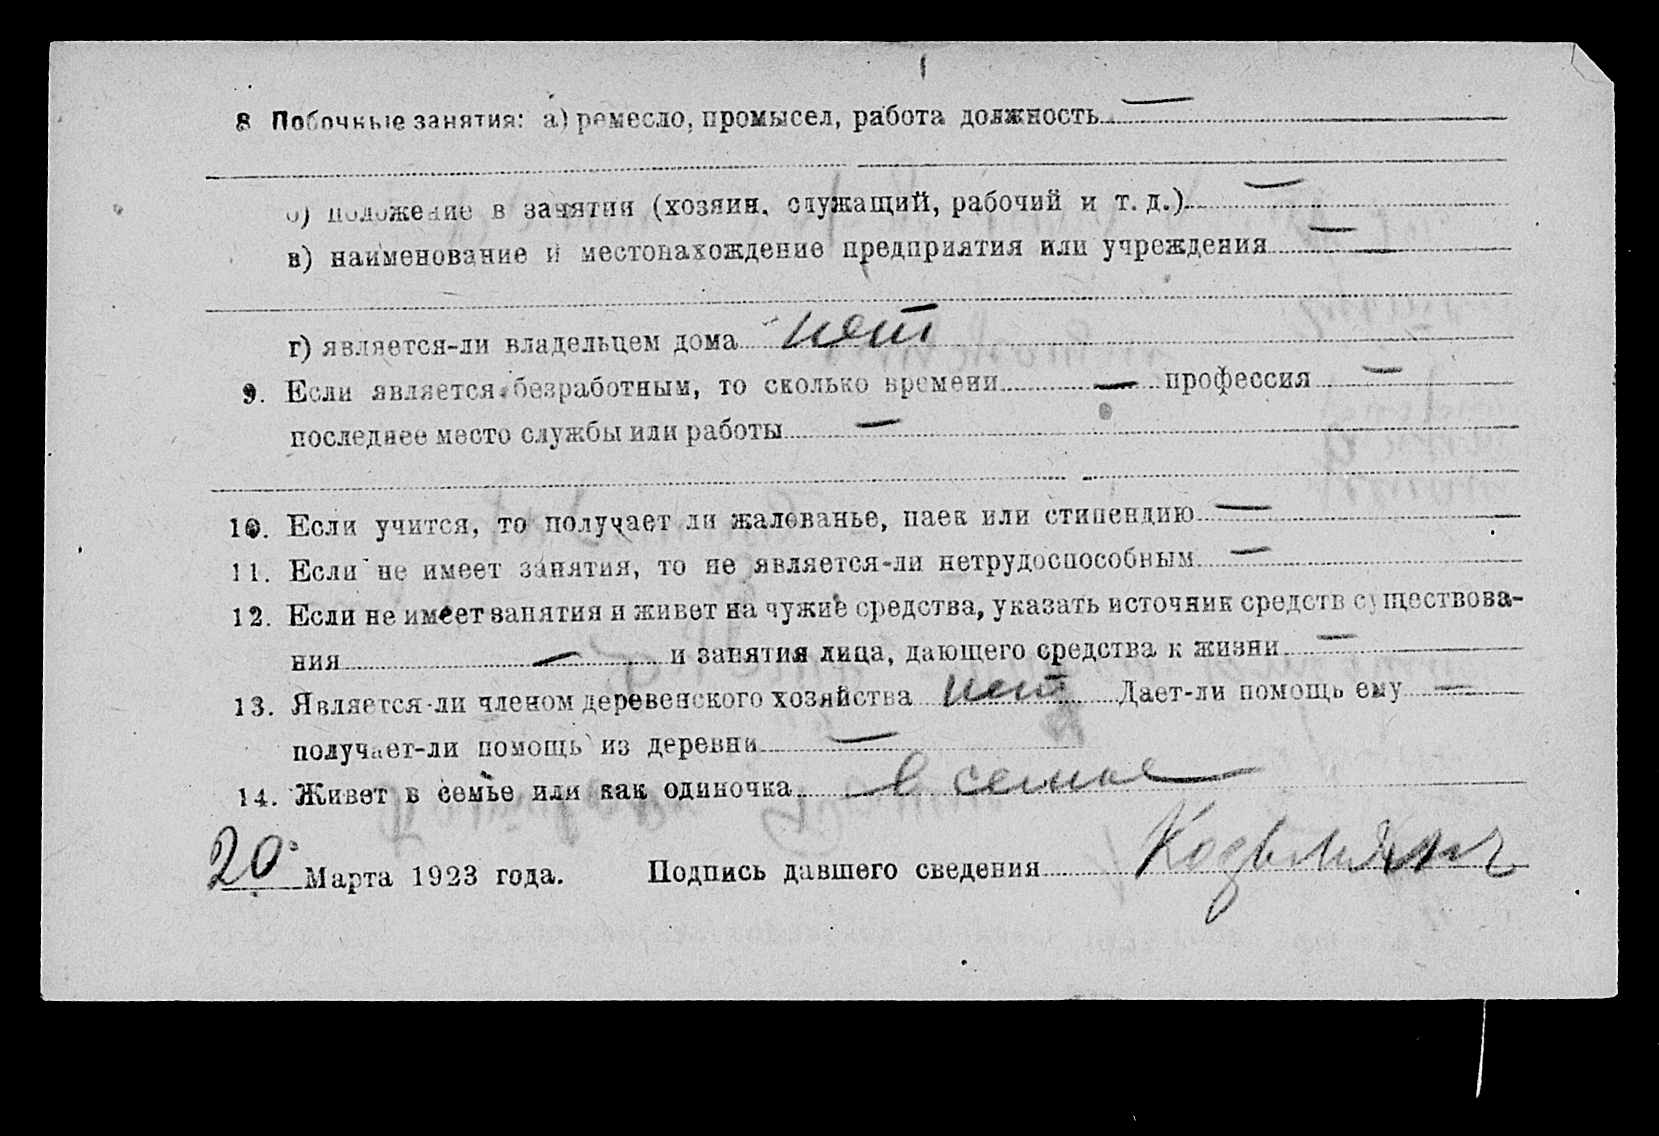 8 Побочные занятия: а) ремесло, промысел, работа должность —
б) положение в занятии (хозяин, служащий, рабочий и т. д.) —
в) наименование и местонахождение предприятия или учреждения —
г) является-ли владельцем дома нет
9. Если является безработным, то сколько времени — профессия —
последнее место службы или работы —
10. Если учится, то получает ли жалованье, паек или стипендию —
11. Если не имеет занятия, то не является-ли нетрудоспособным —
12. Если не имеет занятия и живет на чужие средства, указать источник средств существова-
ния — и занятия лица, дающего средства к жизни —
13. Является-ли членом деревенского хозяйства нет Дает-ли помощь ему —
получает-ли помощь из деревни —
14. Живет в семье или как одиночка в семье
20 Марта 1923 года. Подпись давшего сведения